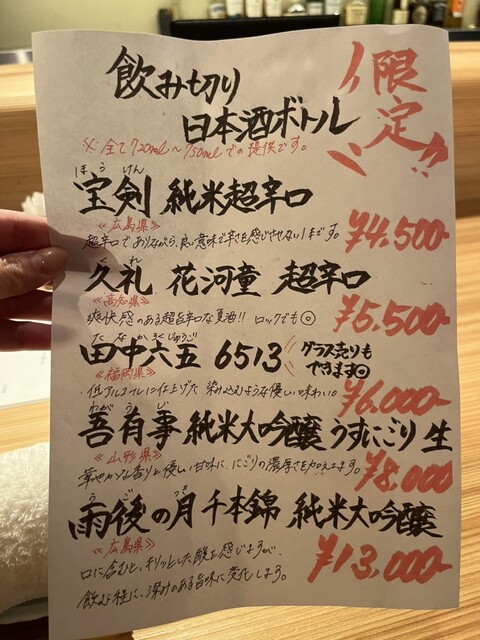 飲み切り
日本酒ボトル
限定!!
※全て720ml~750mlでの提供です。
ほうけん
宝剣 純米超辛口
≪広島県≫
超辛口でありながら、良い意味で辛さを感じさせない1本です。
¥4,500-
くれ
久礼 花河童 超辛口
≪高知県≫
爽快感のある超旨辛口な夏酒!! ロックでも◎
¥5,500-
たなかろくじゅうご
田中六五 6513
グラス売りも
できます◎
≪福岡県≫
低アルコールに仕上げた 染み込むような優しい味わい。
¥6,000-
わがうじ
吾有事 純米大吟醸 うすにごり 生
≪山形県≫
華やかな香りと優しい甘味に、にごりの濃厚さを加えます。
¥8,000
うごつき
雨後の月 千本錦 純米大吟醸
≪広島県≫
口に含むと、キリッとした酸を感じますが、
飲む程に、深みのある旨味に変化します。
¥13,000-